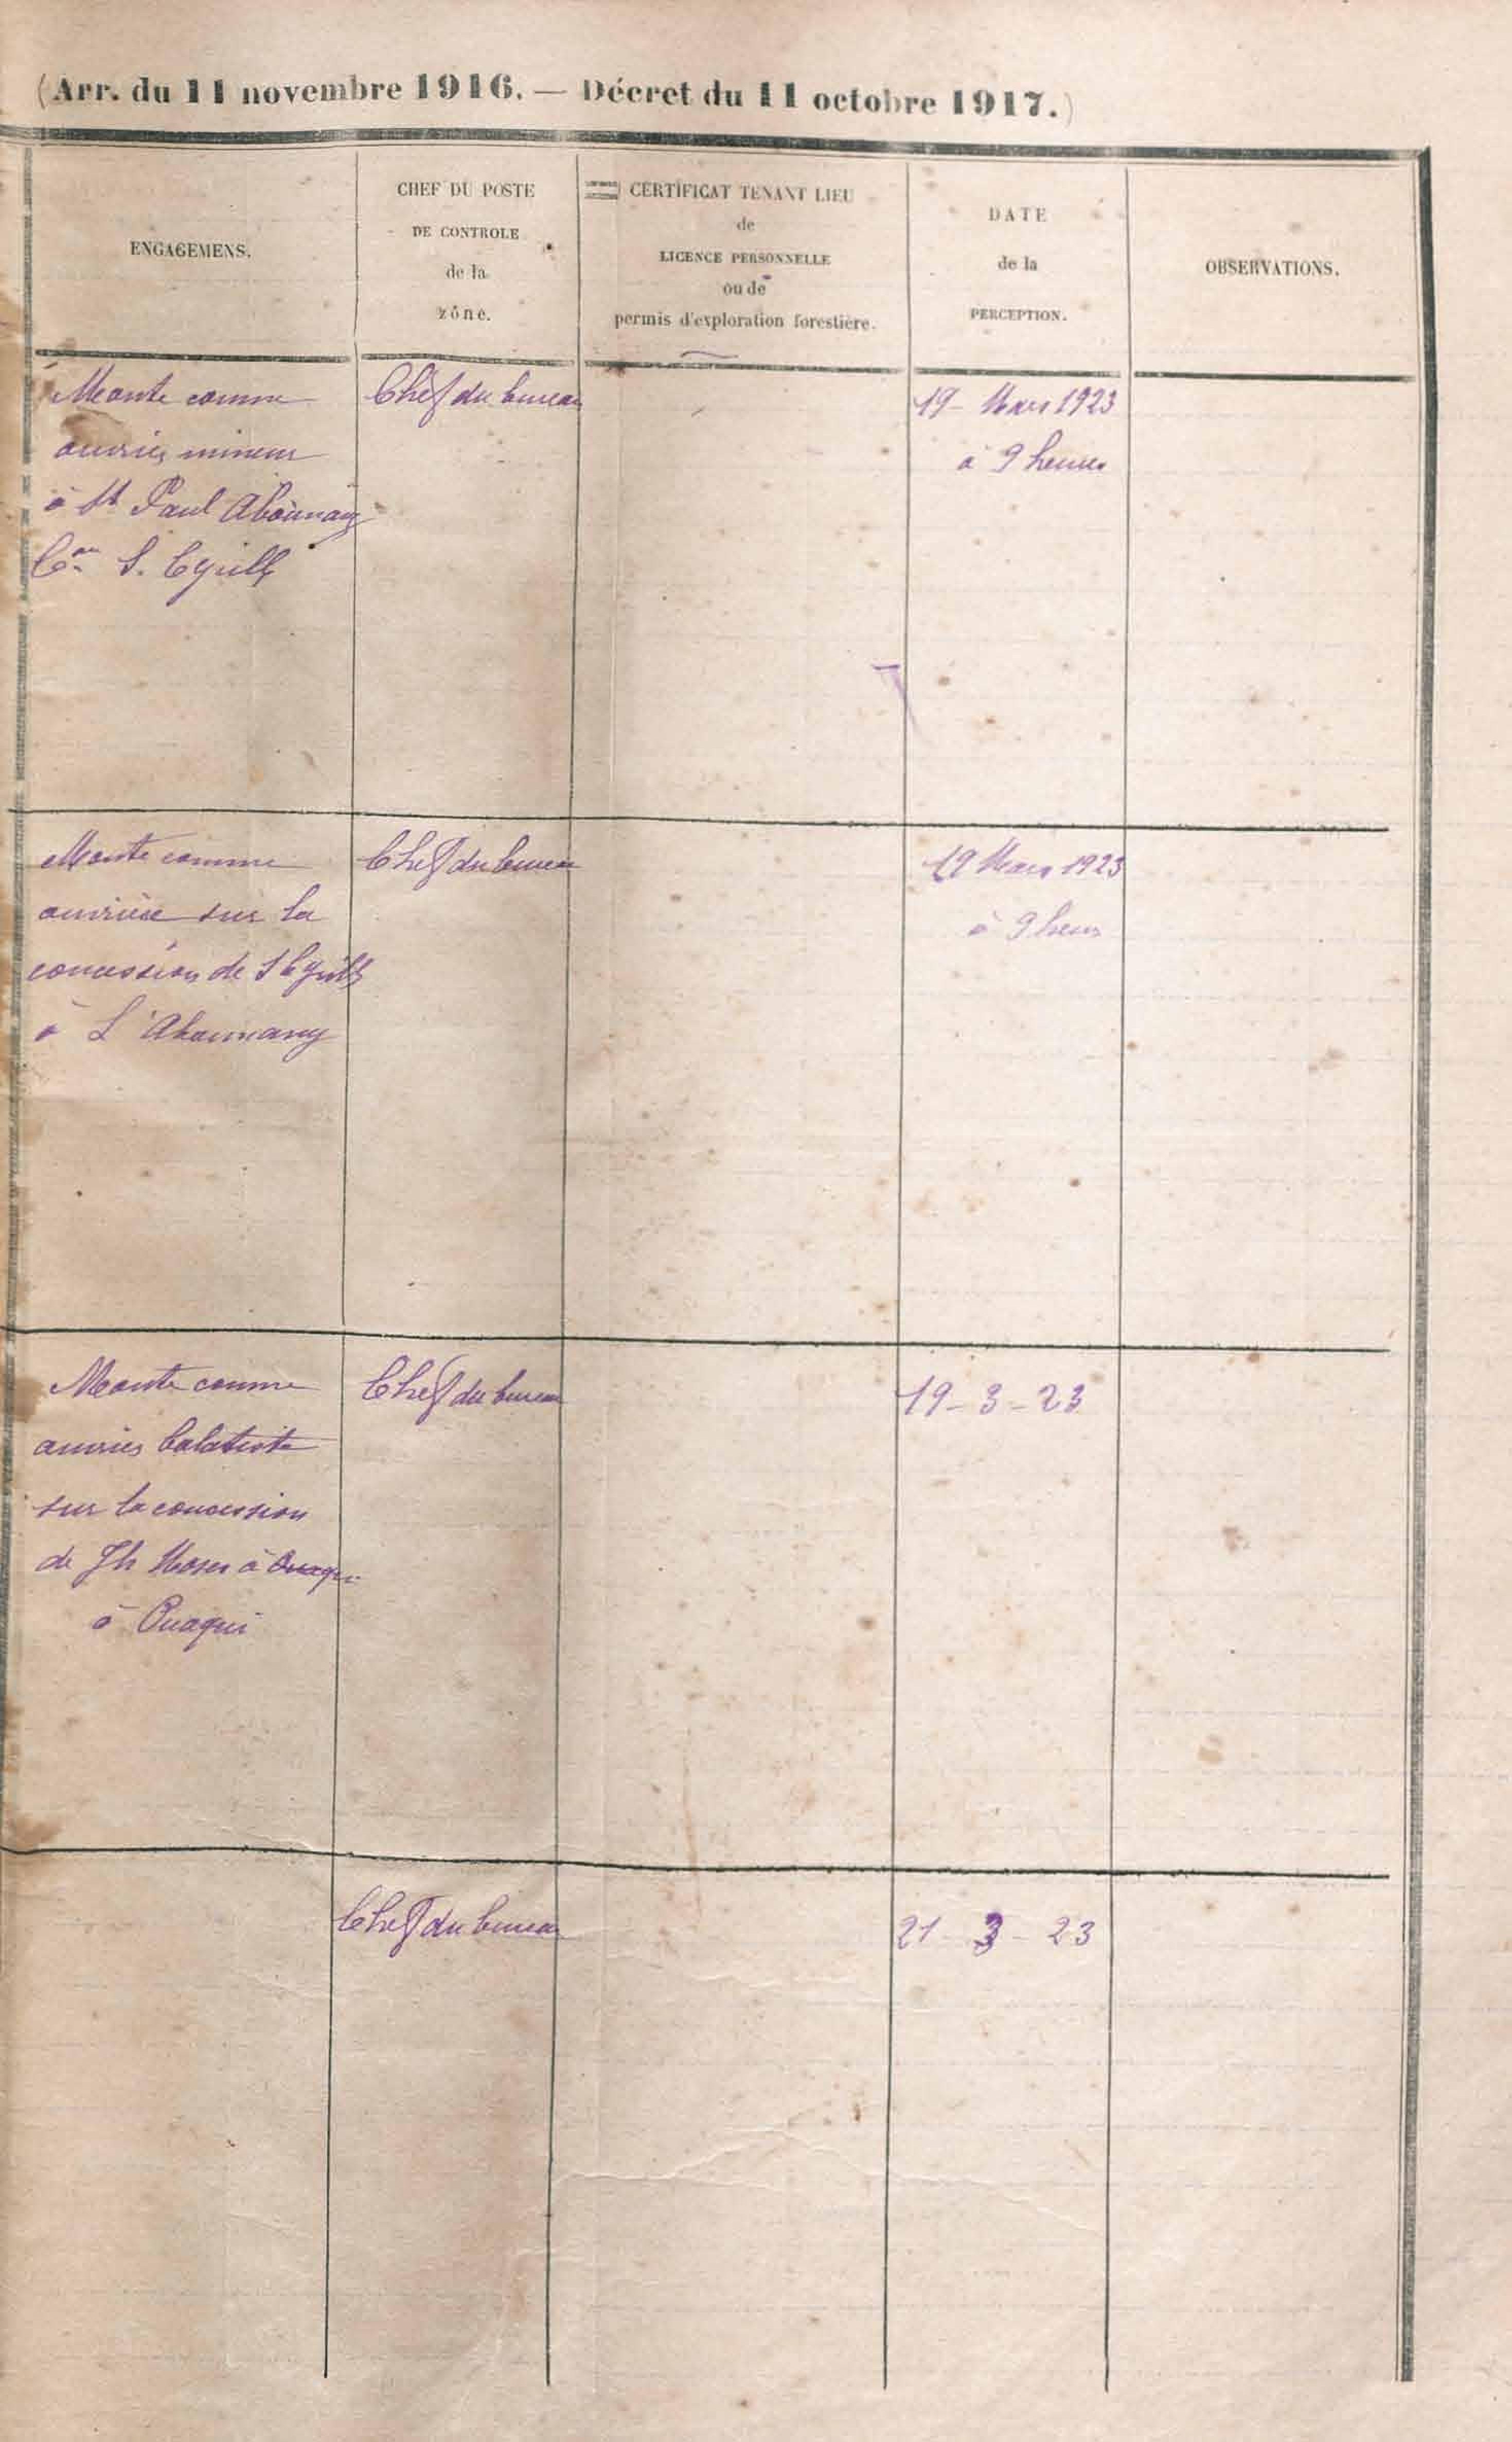 (Arr. du 11 novembre 1916. — Décret du 11 octobre 1917.)
ENGAGEMENS.
CHEF DU POSTE
DE CONTROLE
de la
zône.
CERTIFICAT TENANT LIEU
de
LICENCE PERSONNELLE
ou de
permis d'exploration forestière.
DATE
de la
PERCEPTION.
OBSERVATIONS.
Monte comme
ouvrier mineur
à St Paul Abounany
Con S. Cyrille
Chef du bureau
19 - Mars 1923
à 9 heures
Monte comme
ouvrière sur la
concession de S Cyrille
à L'Abounany
Chef du bureau
19 Mars 1923
à 9 heures
Monte comme
ouvrier balatiste
sur la concession
de Jh Moses à Ouaqui
à Ouaqui
Chef du bureau
19 - 3 - 23
Chef du bureau
21 - 3 - 23